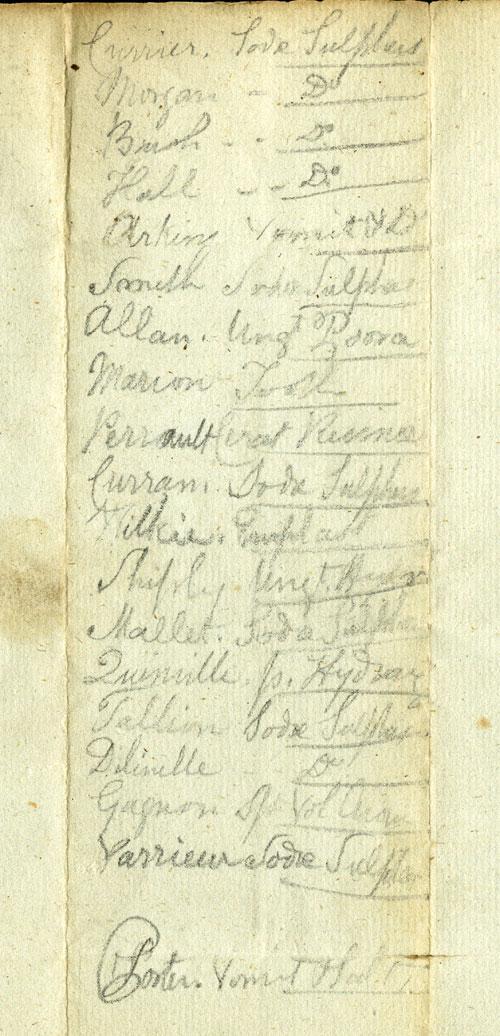 Currier. Sodæ Sulphas
Morgan - Do
Bush - - Do
Hall - - Do
Arkins Vomit & Do
Smith Sodæ Sulphas
Allan. Ungt Psora
Marion Tooth
Perrault Cerat Resinæ
Curran. Sodæ Sulphas
Wilkie. Emplast
Shipley Ungt. Hydr
Mallet. Sodæ Sulphas
Quinville. p. Hydrarg
Tallion Sodæ Sulphas
Delinelle - - Do
Gagnon Sps Vol
Varrieur Sodæ Sulphas
Porter. Vomit